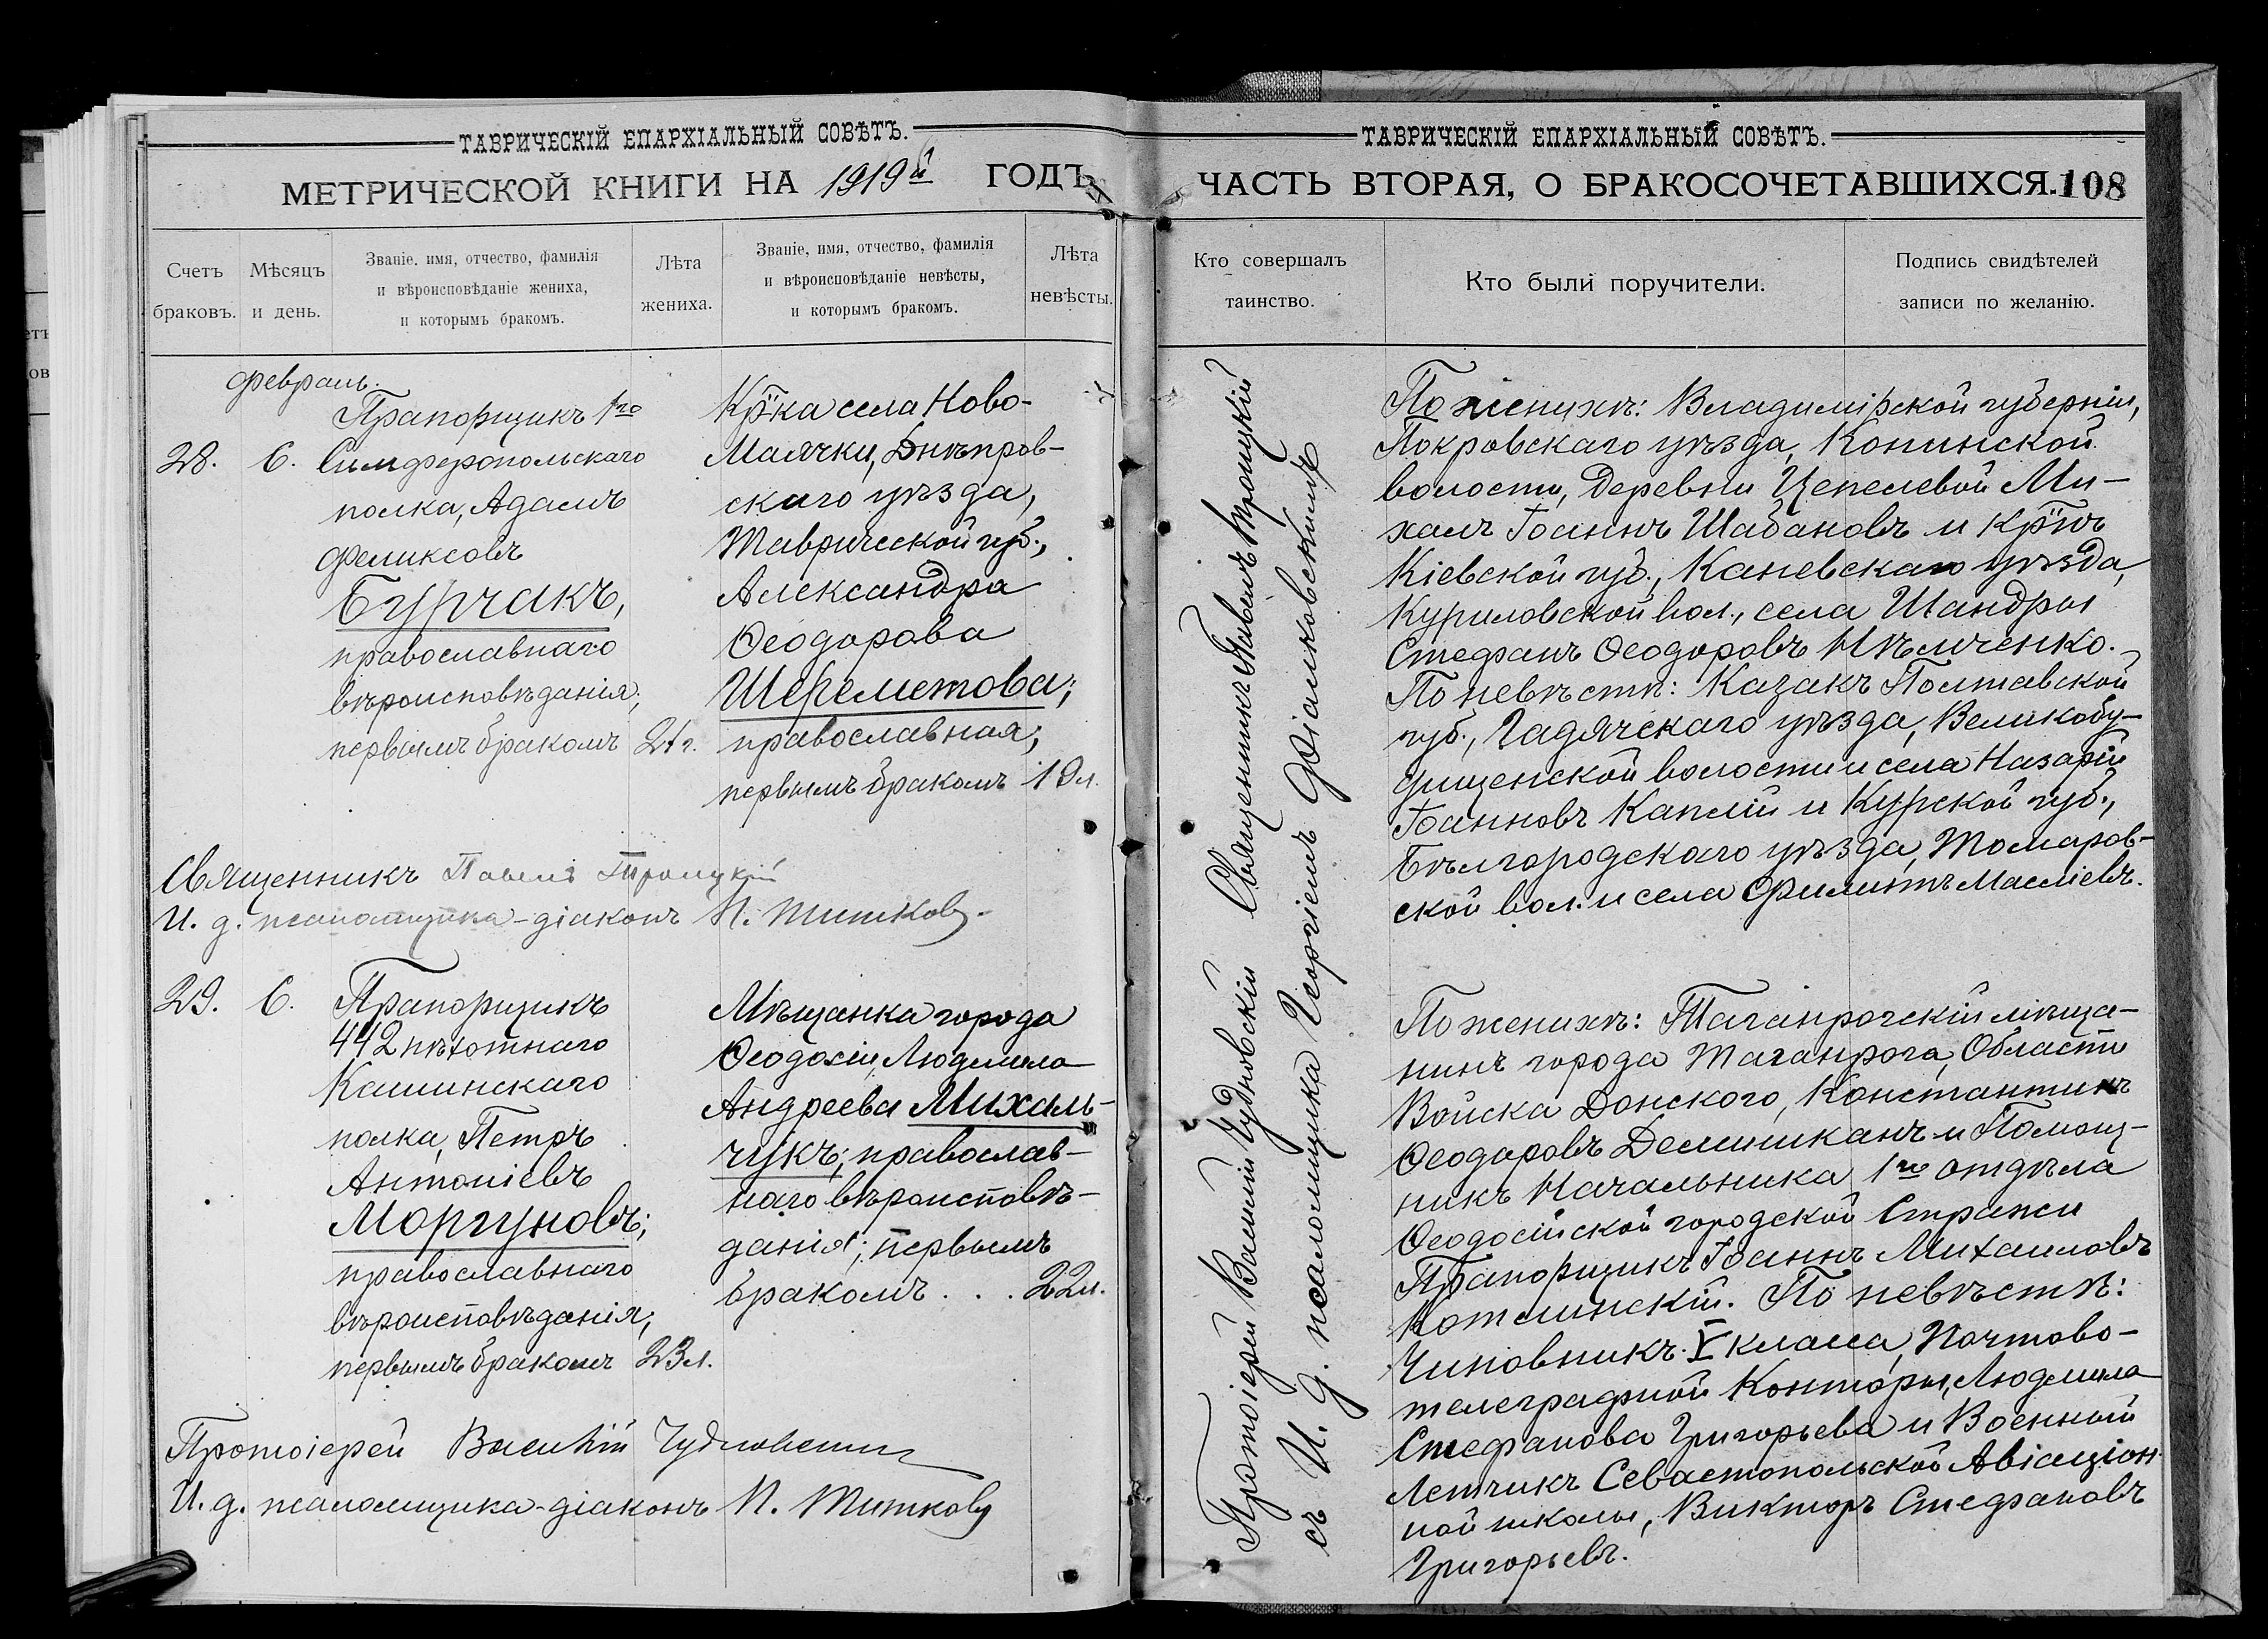 ТАВРИЧЕСКІЙ ЕПАРХІАЛЬНЫЙ СОВѢТЪ.
МЕТРИЧЕСКОЙ КНИГИ НА 1919й ГОДЪ
Счетъ браковъ.
Мѣсяцъ и день.
Званіе, имя, отчество, фамилія
и вѣроисповѣданіе жениха,
и которымъ бракомъ.
Лѣта жениха.
Званіе, имя, отчество, фамилія
и вѣроисповѣданіе невѣсты,
и которымъ бракомъ.
Лѣта невѣсты.
Февраль.
28. 6.
Прапорщикъ 1го
Симферопольскаго
полка, Адамъ
Феликсовъ
Бурчакъ,
православнаго
вѣроисповѣданія;
первымъ бракомъ 21 г.
Кр-ка села Ново-
Маячки, Днѣпров-
скаго уѣзда,
Таврической губ.,
Александра
Ѳеодорова
Шереметова;
православная;
первымъ бракомъ 19 л.
Священникъ Павелъ Троицкій
И. д. псаломщика-діаконъ П. Титковъ.
29. 6.
Прапорщикъ
442 пѣхотнаго
Кашинскаго
полка, Петръ
Антоніевъ
Моргуновъ;
православнаго
вѣроисповѣданія;
первымъ бракомъ 23 л.
Мѣщанка города
Ѳеодосіи, Людмила
Андреева Михаль-
чукъ; православ-
наго вѣроисповѣ-
данія; первымъ
бракомъ . . . 22 л.
Протоіерей Василій Чудновскій
И. д. псаломщика-діаконъ П. Титковъ
ТАВРИЧЕСКІЙ ЕПАРХІАЛЬНЫЙ СОВѢТЪ.
ЧАСТЬ ВТОРАЯ, О БРАКОСОЧЕТАВШИХСЯ. 108
Кто совершалъ таинство.
Кто были поручители.
Подпись свидѣтелей
записи по желанію.
Протоіерей Василій Чудновскій Священникъ Павелъ Троицкій
съ И. д. псаломщика Георгіемъ
По женихѣ: Владимірской губерніи,
Покровскаго уѣзда, Копнинской
волости, деревни Цепелевой Ми-
хаилъ Іоаннъ Шабановъ и кр-нъ
Кіевской губ., Каневскаго уѣзда,
Куриловской вол., села Шандры
Стефанъ Ѳеодоровъ
По невѣстѣ: Казакъ Полтавской
губ., Гадячскаго уѣзда, Великобу-
дищенской волости и села Назарій
Іоанновъ Каплій и Курской губ.,
Бѣлгородскаго уѣзда, Томаров-
ской вол. и села
По женихѣ: Таганрогскій мѣща-
нинъ города Таганрога, Области
Войска Донского, Константинъ
Ѳеодоровъ и Помощ-
никъ Начальника 1го отдѣла
Ѳеодосійской городской Стражи
Прапорщикъ Іоаннъ Михаиловъ
Котлинскій. По невѣстѣ:
Чиновникъ V класса, Почтово-
телеграфной Конторы, Людмила
Стефанова Григорьева и Военный
Летчикъ Севастопольской Авіаціон-
ной школы, Викторъ Стефановъ
Григорьевъ.